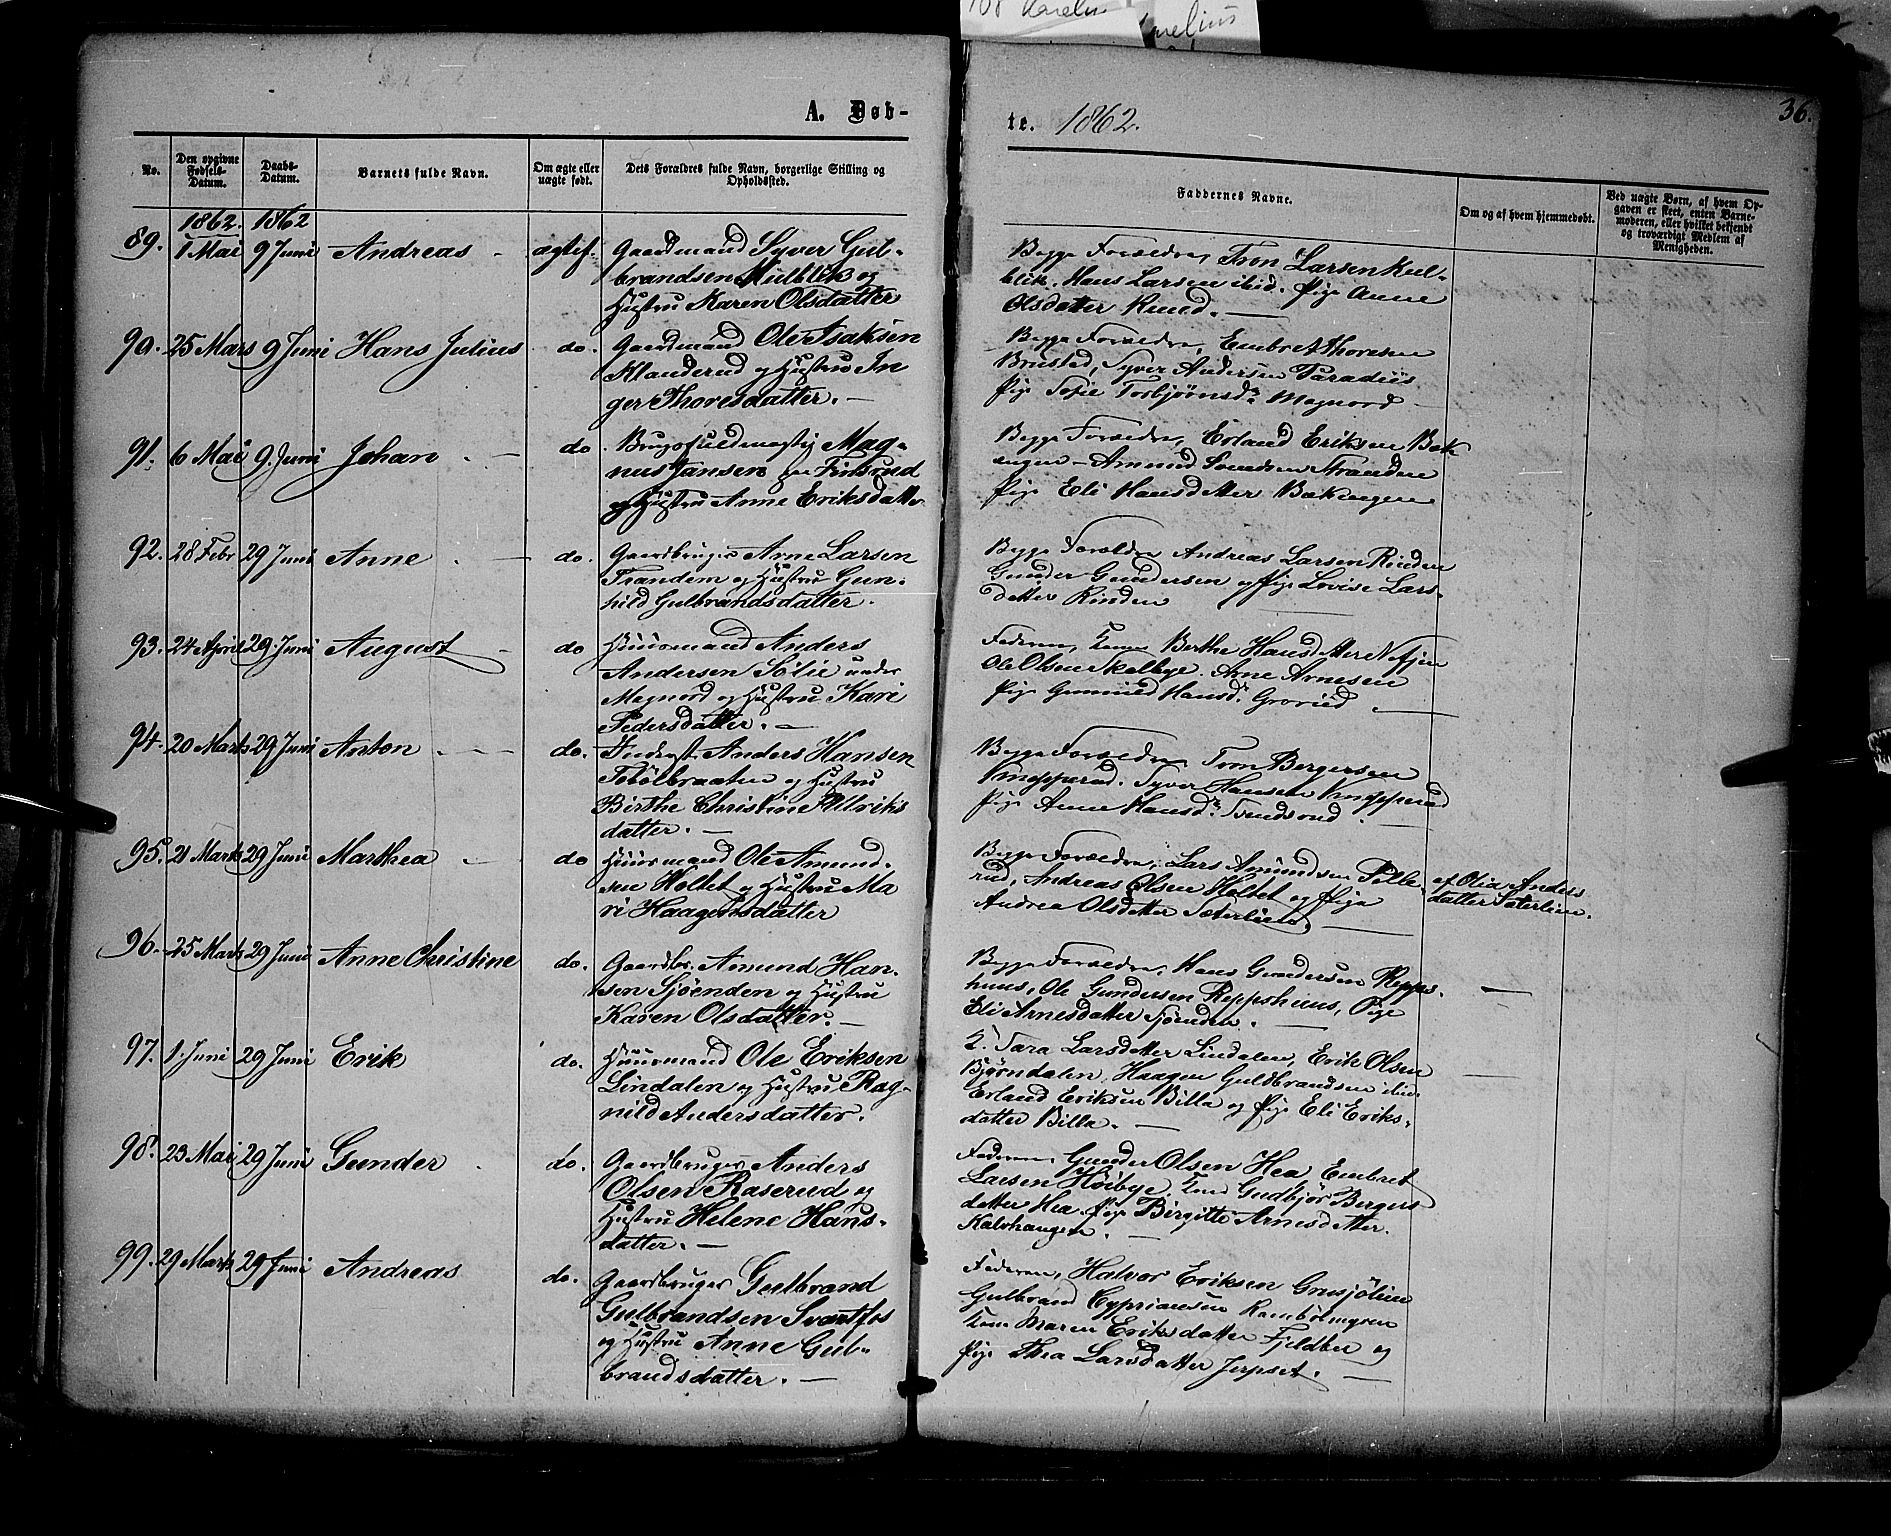 108 Karelius
A. Døb-
te. 1862.
36.
No.
Den opgivne Fødsels-Datum.
Daabs-Datum.
Barnets fulde Navn.
Om ægte eller uægte født.
Dets Forældres fulde Navn, borgerlige Stilling og Opholdssted.
Faddernes Navne.
Om og af hvem hjemmedøbt.
Ved uægte Børn, af hvem Opgaven er skeet, enten Barnemoderen, eller hvilket bekjendt og troværdigt Medlem af Menigheden.
1862. 1862
89. 1 Mai 9 Juni Andreas - ægtef. Gaardmand Syver Gul-
brandsen Kulblik og
Hustru Karen Olsdatter
Begge Forældre, Tron Larsen Kul-
blik. Hans Larsen ibid. Pige Anne
Olsdatter Rund. -
90. 25 Mars 9 Juni Hans Julius do. Gaardmand Ole Isaksen
Klanderud og Hustru In
ger Thoresdatter. -
Begge Forældre, Embret Thoresen
Brustad, Syver Andersen Paradiis
Pige Sofie Torbjørnsdr. Magnord
91. 6 Mai 9. Juni Johan - do. Brugsfuldmægtig Mag-
nus Jansen Finsrud
og Hustru Anne Eriksdatter
Begge Forældre, Erland Eriksen Bak
engen - Amund Svendsen Stranden
Pige Eli Hansdatter Bakengen
92. 28 Febr 29 Juni Anne - do. Gaardbruger Arne Larsen
Trandem og Hustru Gun-
hild Gulbrandsdatter.
Begge Forældre Andreas Larsen Rinden
Gunder Gundersen og Pige Lovise Lars-
datter Rinden
93. 24 April 29. Juni August - do Huusmand Anders
Andersen Sølie under
Magnord og Hustru Kari
Pedersdatter. -
Faderen, Kone Berthe Hansdatter
Ole Olsen Skelbye. Arne Arnesen
Pige Gunnild Hansdr. Grorud.
94. 20 Marts 29 Juni Anton - do. Inderst Anders Hansen
Tebølbraaten og Hustru
Birthe Christine Ulriks
datter. -
Begge Forældre Tron Bergersen
Knapperud. Syver Hansen Knapperud
Pige Anne Hansdr.
95. 21 Marts 29 Juni Marthea - do Huusmand Ole Amund-
sen Holtet og Hustru Ma
ri Haagensdatter
Begge Forældre, Lars Amundsen Pelle-
rud, Andreas Olsen Holtet og Pige
Andrea Olsdatter Sæterlien.
af Olia Anders
datter Sæterlien.
96. 25 Marts 29 Juni Anne Christine do. Gaardbr. Amund Han-
sen Sjøenden og Hustru
Karen Olsdatter. -
Begge Forældre, Hans Gundersen Repps-
huus, Ole Gundersen Reppshuus, Pige
Eli Arnesdatter Sjøenden. -
97. 1. Juni 29 Juni Erik do. Huusmand Ole Eriksen
Lindalen og Hustru Rag-
nild Andersdatter.
K. Sara Larsdatter Lindalen, Erik Olsen
Bjørndalen, Haagen Guldbrandsen ibid.
Erland Eriksen Billa og Pige Eli Eriks-
datter Billa. -
98. 23 Mai 29 Juni Gunder do. Gaardbruger Anders
Olsen Raserud og
Hustru Helene Hans-
datter. -
Faderen, Gunder Olsen Hea, Embret
Larsen Høibye, Kone Gudbjør Bergers
datter Hea. Pige Birgitte Arnesdatter
Kalvhaugen. -
99. 29 Marts 29 Juni Andreas do. Gaardbruger Gulbrand
Gulbrandsen Svartfos
og Hustru Anne Gul-
brandsdatter. -
Faderen, Halvor Eriksen Grusjølien
Gulbrand Cypriansen Rambølmyren
Kone Maren Eriksdatter Fjeldber og
Pige Thea Larsdatter Jerpset. -